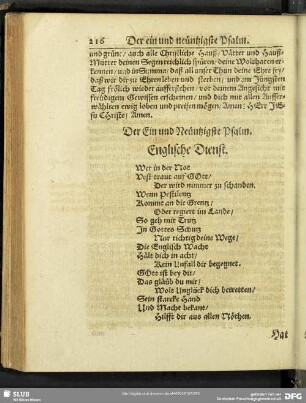 216 Der ein und neüntzigste Psalm.
und grüne/ auch alle Christliche Hauß-Vätter und Hauß-
Mütter deinen Segen reichlich spüren/ deine Wolthaten er-
kennen/ und in Summa/ daß all unser Thun deine Ehre sey/
daß wir dir zu Ehren leben und sterben/ und am Jüngsten
Tag frölich wieder aufferstehen/ vor deinem Angesicht mit
freudigem Gewissen erscheinen/ und dich mit allen Außer-
wählten ewig loben und preisen mögen/ Amen: HErr JE-
su CHriste/ Amen.
Der Ein und Neüntzigste Psalm.
Englische Dienst.
Wer in der Not
Vest traut auf GOtt/
Der wird nimmer zu schanden.
Wenn Pestilentz
Kommt an die Grentz/
Oder regiert im Lande/
So geh mit Trutz
In Gottes Schutz
Nur richtig deine Wege/
Die Englisch Wacht
Hält dich in acht/
Kein Unfall dir begegnet.
GOtt ist bey dir/
Das gläub du mir/
Wolt Unglück dich betretten/
Sein starcke Hand
Und Macht bekant/
Hilfft dir aus allen Nöthen.
Hat
SLUB
Wir führen Wissen.
gefördert von der
Deutschen Forschungsgemeinschaft
DFG